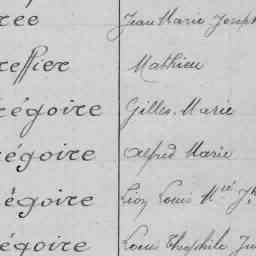 ree Jean Marie Joseph
reffier Mathieu
régoire Gilles Marie
régoire Alfred Marie
égoire Léon Louis Mie Jh
égoire Louis Théophile Ju